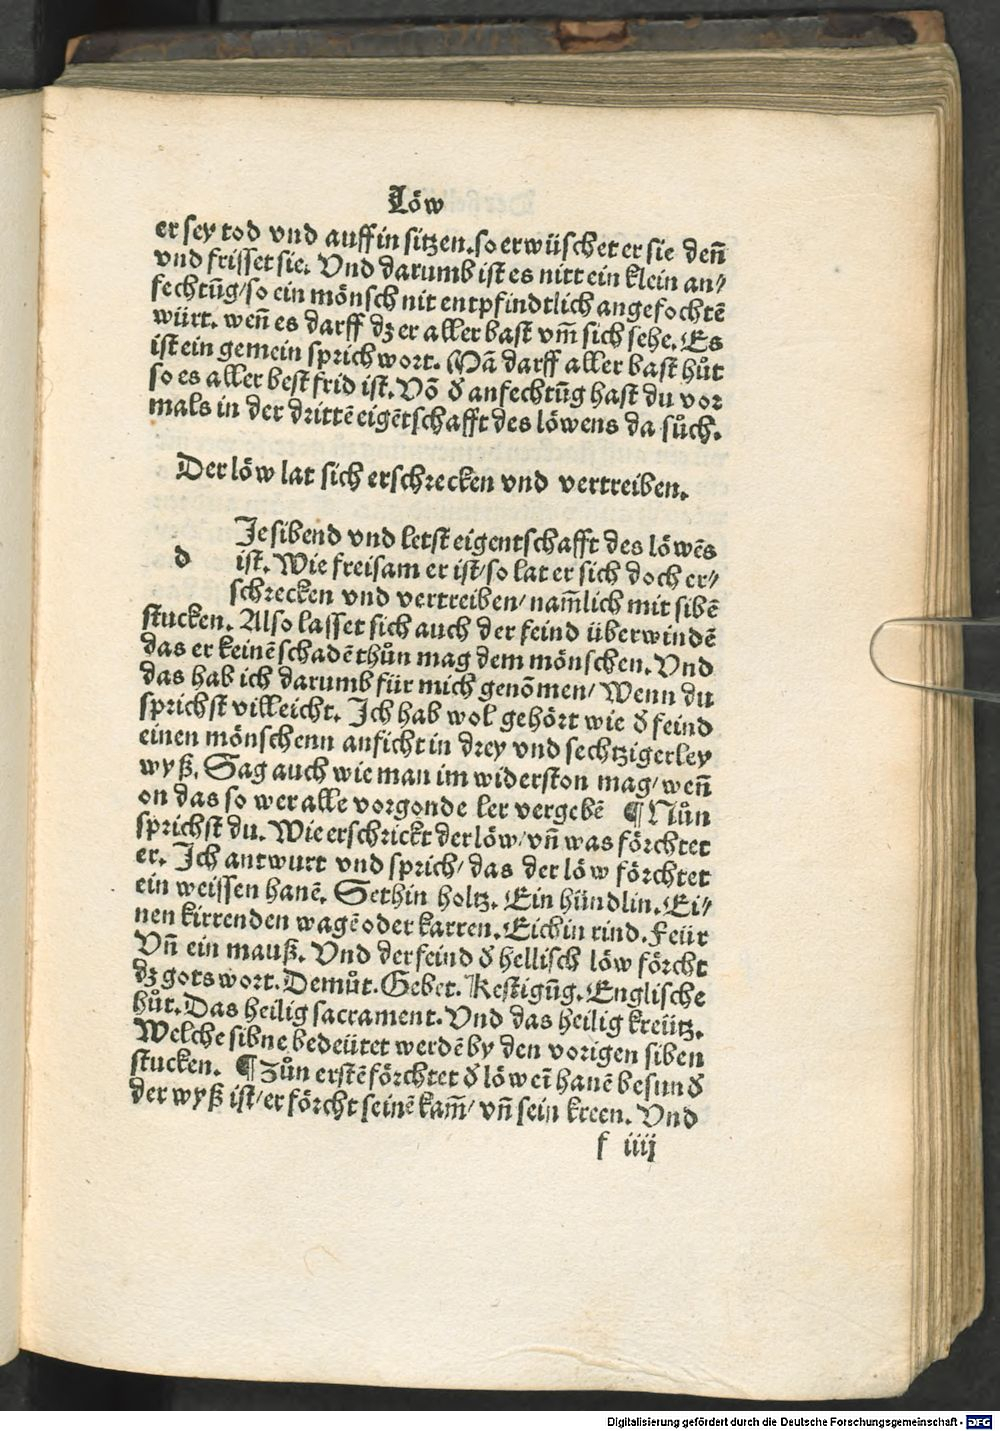 Löw
er sey tod vnd auff in sitzen. so erwüschet er sie deñ
vnd frisset sie. Vnd darumb ist es nitt ein klein an⸗
fechtũg/ so ein mönsch nit entpfindtlich angefochtẽ
würt. weñ es darff dz er aller bast vm̃ sich sehe. Es
ist ein gemein sprichwort. Mã darff aller bast hůt
so es aller best frid ist. Võ d̕ anfechtũg hast du vor
mals in der drittẽ eigẽtschafft des löwens da sůch.
Der löw lat sich erschrecken vnd vertreiben.
d Je sibend vnd letst eigentschafft des löwẽs
ist. Wie freisam er ist/ so lat er sich doch er⸗
schrecken vnd vertreiben/ nam̃lich mit sibẽ
stucken. Also lasset sich auch der feind überwindẽ
das er keinẽ schadẽ thůn mag dem mönschen. Vnd
das hab ich darumb für mich genõmen/ Wenn du
sprichst villeicht. Ich hab wol gehört wie d̕ feind
einen mönschenn anficht in drey vnd sechtzigerley
wyß. Sag auch wie man im widerston mag/ weñ
on das so wer alle vorgonde ler vergebẽ ¶ Nůn
sprichst du. Wie erschrickt der löw/ vñ was förchtet
er. Ich antwurt vnd sprich/ das der löw förchtet
ein weissen hanẽ. Sethin holtz. Ein hündlin. Ei⸗
nen kirrenden wagẽ oder karren. Eichin rind. Feür
Vñ ein mauß. Vnd der feind d̕ hellisch löw förcht
dz gots wort. Demůt. Gebet. Kestigũg. Englische
hůt. Das heilig sacrament. Vnd das heilig kreütz.
Welche sibne bedeütet werdẽ by den vorigen siben
stucken. ¶ Zůn erstẽ förchtet d̕ löw eĩ hanẽ besund̕
der wyß ist/ er förcht seinẽ kam̃/ vñ sein kreen. Vnd
f iiij
Digitalisierung gefördert durch die Deutsche Forschungsgemeinschaft - DFG